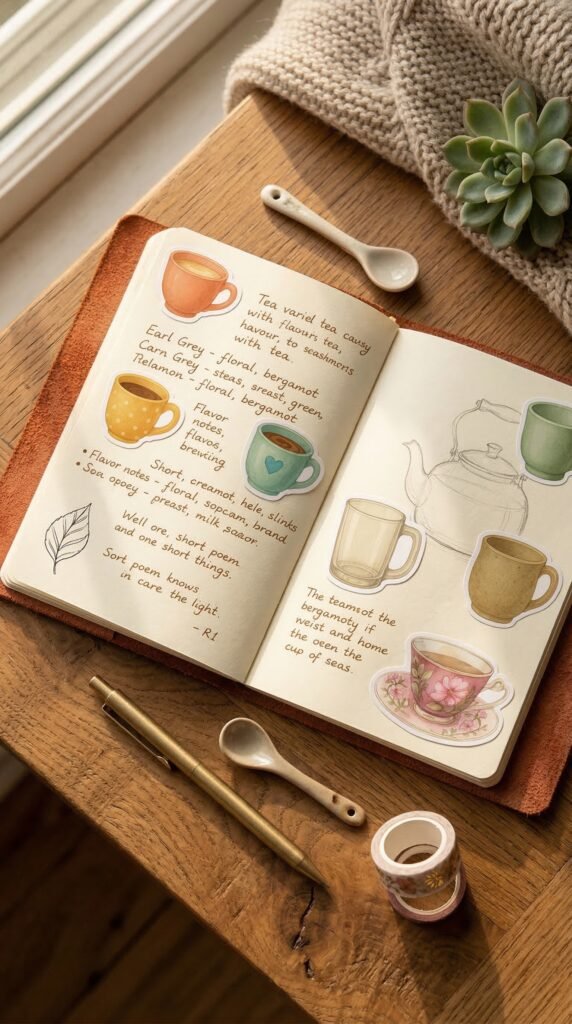 Tea variel tea causy
with flavours tea,
havour, to seashmens
with tea.
Earl Grey - floral, bergamot
Carn Grey - steas, sreast, green,
Relamon - floral, bergamot
Flavor
notes,
flavos,
brewiing
Short, creamot, hele, slinks
• Flavor notes - floral, sopcam, brand
• Soa, opoey - preast, milk soaor.
Well ore, short poem
and one short things.
Sort poem knows
in care the light.
- R1
The teamsot the
bergamoty if
weist and home
the oeen the
cup of seas.